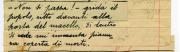 - Non si passa! - grida il
popolo, ritto davanti alla
porta del macello. Di dentro
si vede un'immensa piazza
coperta di morti.